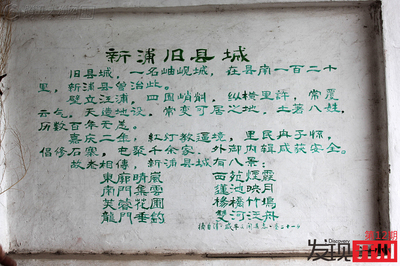 新浦旧县城
旧县城，一名岫岘城，在县南一百二十
里，新浦县曾治此。
壁立江浦，四围峭削，纵横里许，常覆
云气，天造地设，常变可居之地，土著八姓，
历数百年无恙。
嘉庆二年，红灯教遭境，里民冉子师，
倡修石寨，屯聚千余家，外御内辑咸获安全。
故老相傳，新浦县城有八景：
東廓晴嵐 西苑煙霞
南門集雲 蓮池映月
芙蓉花圃 楊橋竹塢
龍門垂釣 雙河汪舟
Discovery
发现
第12期